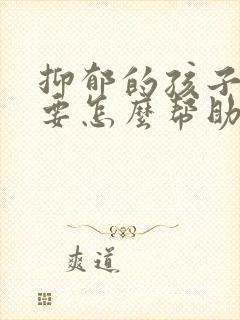 抑郁的孩子
要怎麽帮助
爽道